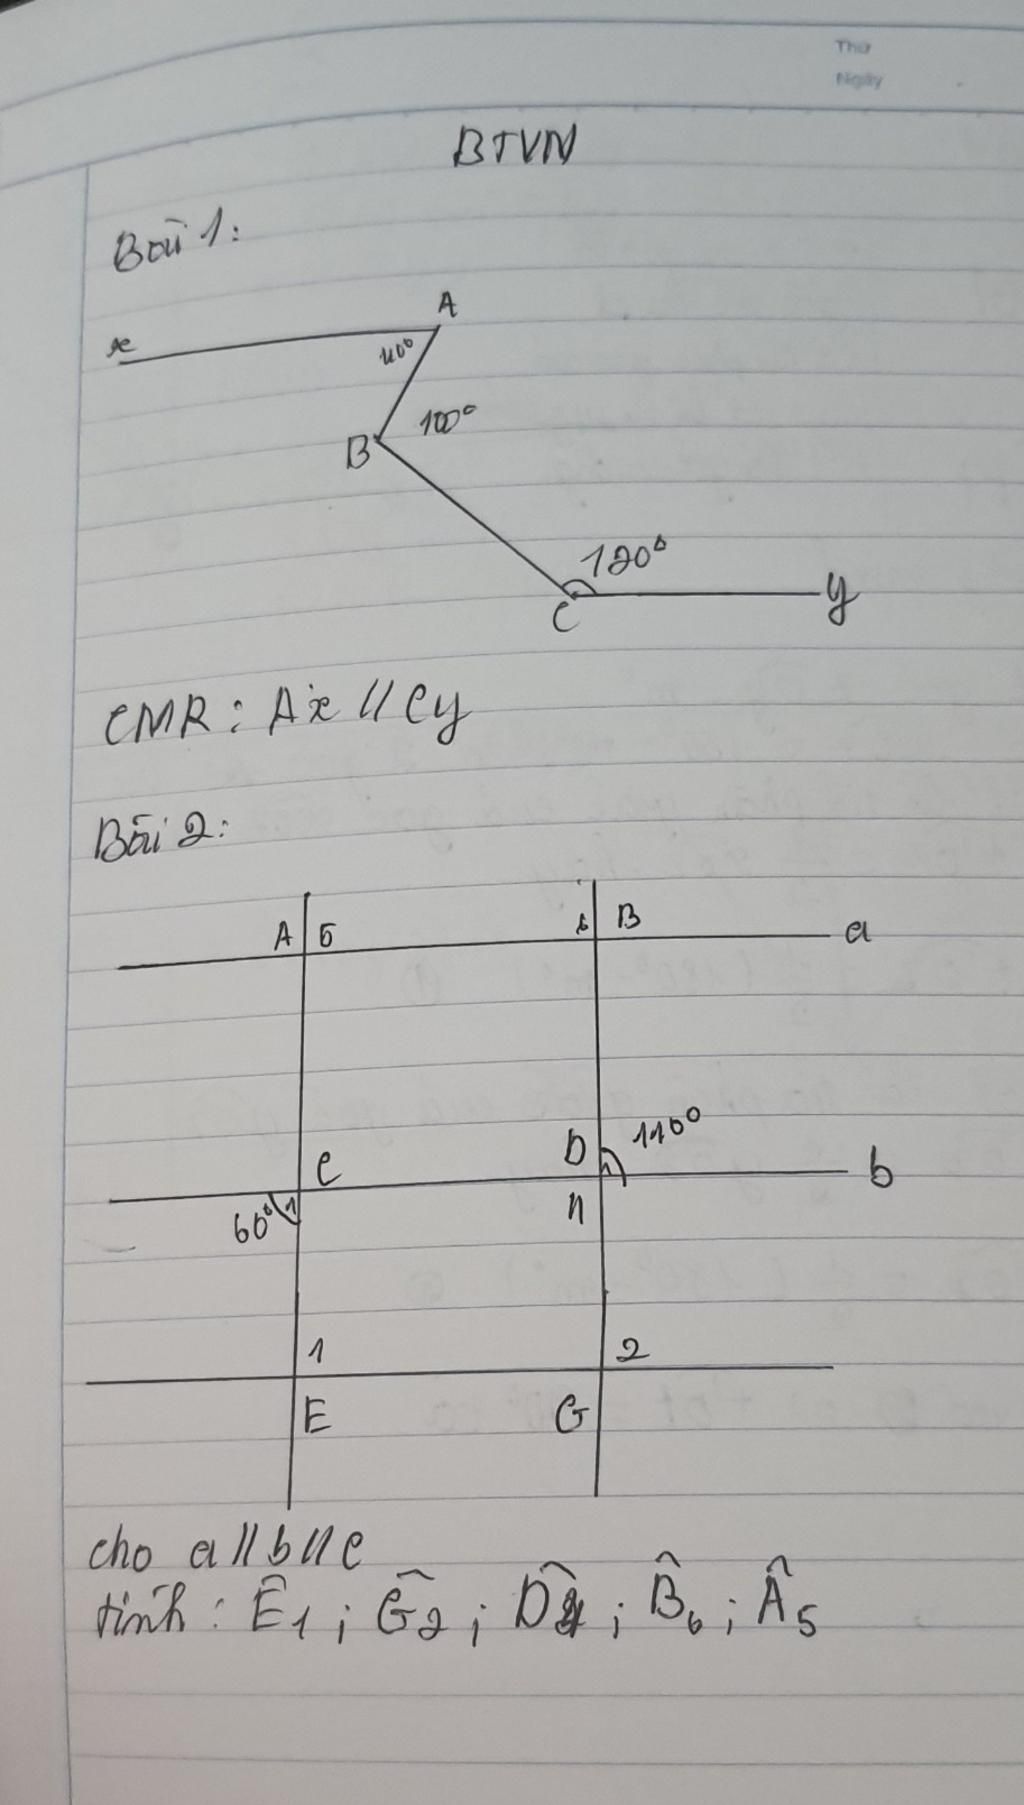 Thứ
Ngày
BTVN
Bài 1:
A
x
40°
100°
B
120°
C
y
CMR: Ax // Cy
Bài 2:
A 5
6 B
a
C
D
110°
b
60°
1
4
1
2
E
G
cho a // b // c
tính: Ê1; Ĝ2; D̂4; B̂6; Â5